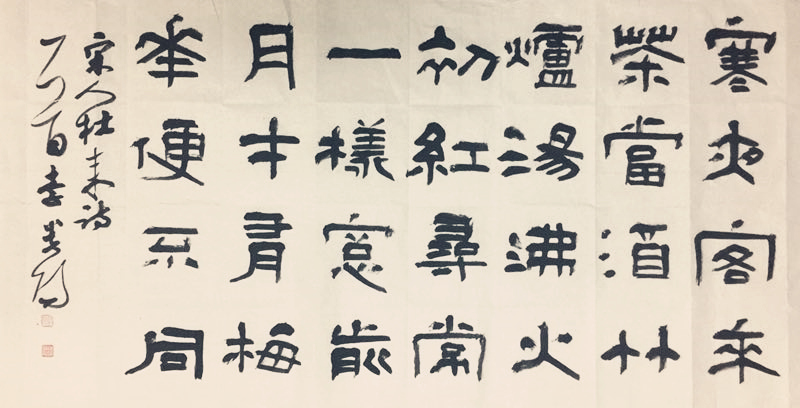 寒夜客來
茶當酒竹
爐湯沸火
初紅尋常
一樣窓前
月才有梅
華便不同
宋人杜耒詩